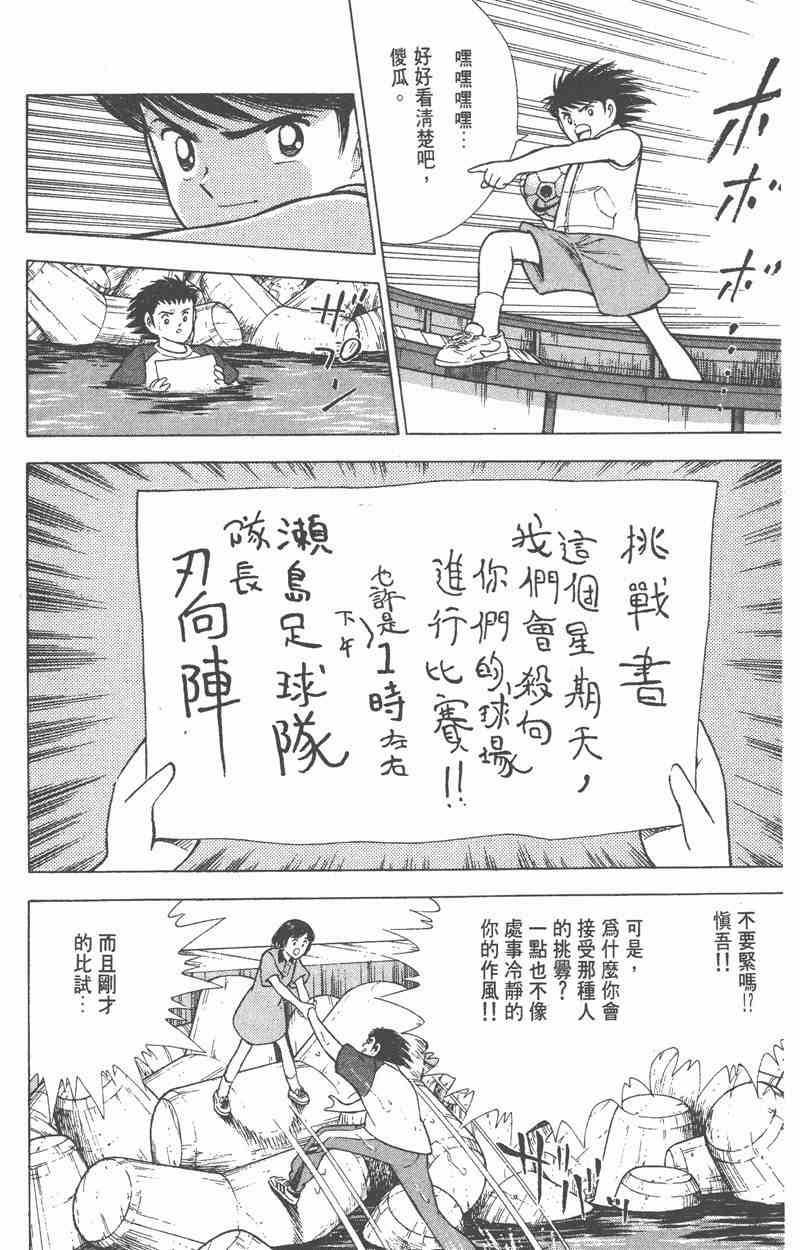 嘿嘿嘿嘿…
好好看清楚吧，
傻瓜。
ボボボ…
ザプ
挑戰書
這個星期天，
我們會殺向
你們的球場
進行比賽!!
也許是1時左右
下午
瀨島足球隊
隊長
刃向陣
不要緊嗎!?
慎吾!!
可是，
爲什麼你會
接受那種人
的挑釁?
一點也不像
處事冷靜的
你的作風!!
而且剛才
的比試…